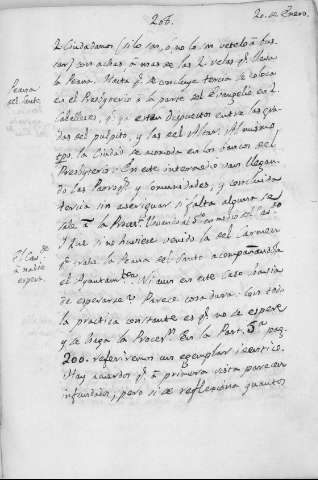 206.
20. de Enero.
2 Ciudadanos (si lo son, ó no lo son veteloâ bus-
car) con achas â mas de las 2 velas qe. lleva
Peana del Santo.
la Peana. Hasta qe. se concluye tercia se coloca
en el Presbyterio â la parte del Evangelio en 2
caballetes, qe. ya estan dispuestos entre las gra-
das del pulpito, y las del Altar. Al mismo
tpo. la Ciudad se acomoda en los bancos del
Presbyterio. En este intermedio van llegan-
do las Parroqs. y Comunidades, y concluida
tercia sin averiguar si falta alguna se
sale â la Procesn. llevando el Sto. en medio del Cavdo.
El Cavdo. â nadie espera.
Y qué si no huviere venido la del Carmen
qe. sale la Peana del Santo acompañandola
el Ayuntamto.? Ni aun en este caso havia
de esperarse? Parece cosa dura. Con todo
la practica constante es qe. no se espere
y se haga la Procesn. En la Part. 5a. pag.
200. referiremos un exemplar identico.
Hay acuerdos qe. â primera vista parecen
infundados, pero si se reflexiona quantos